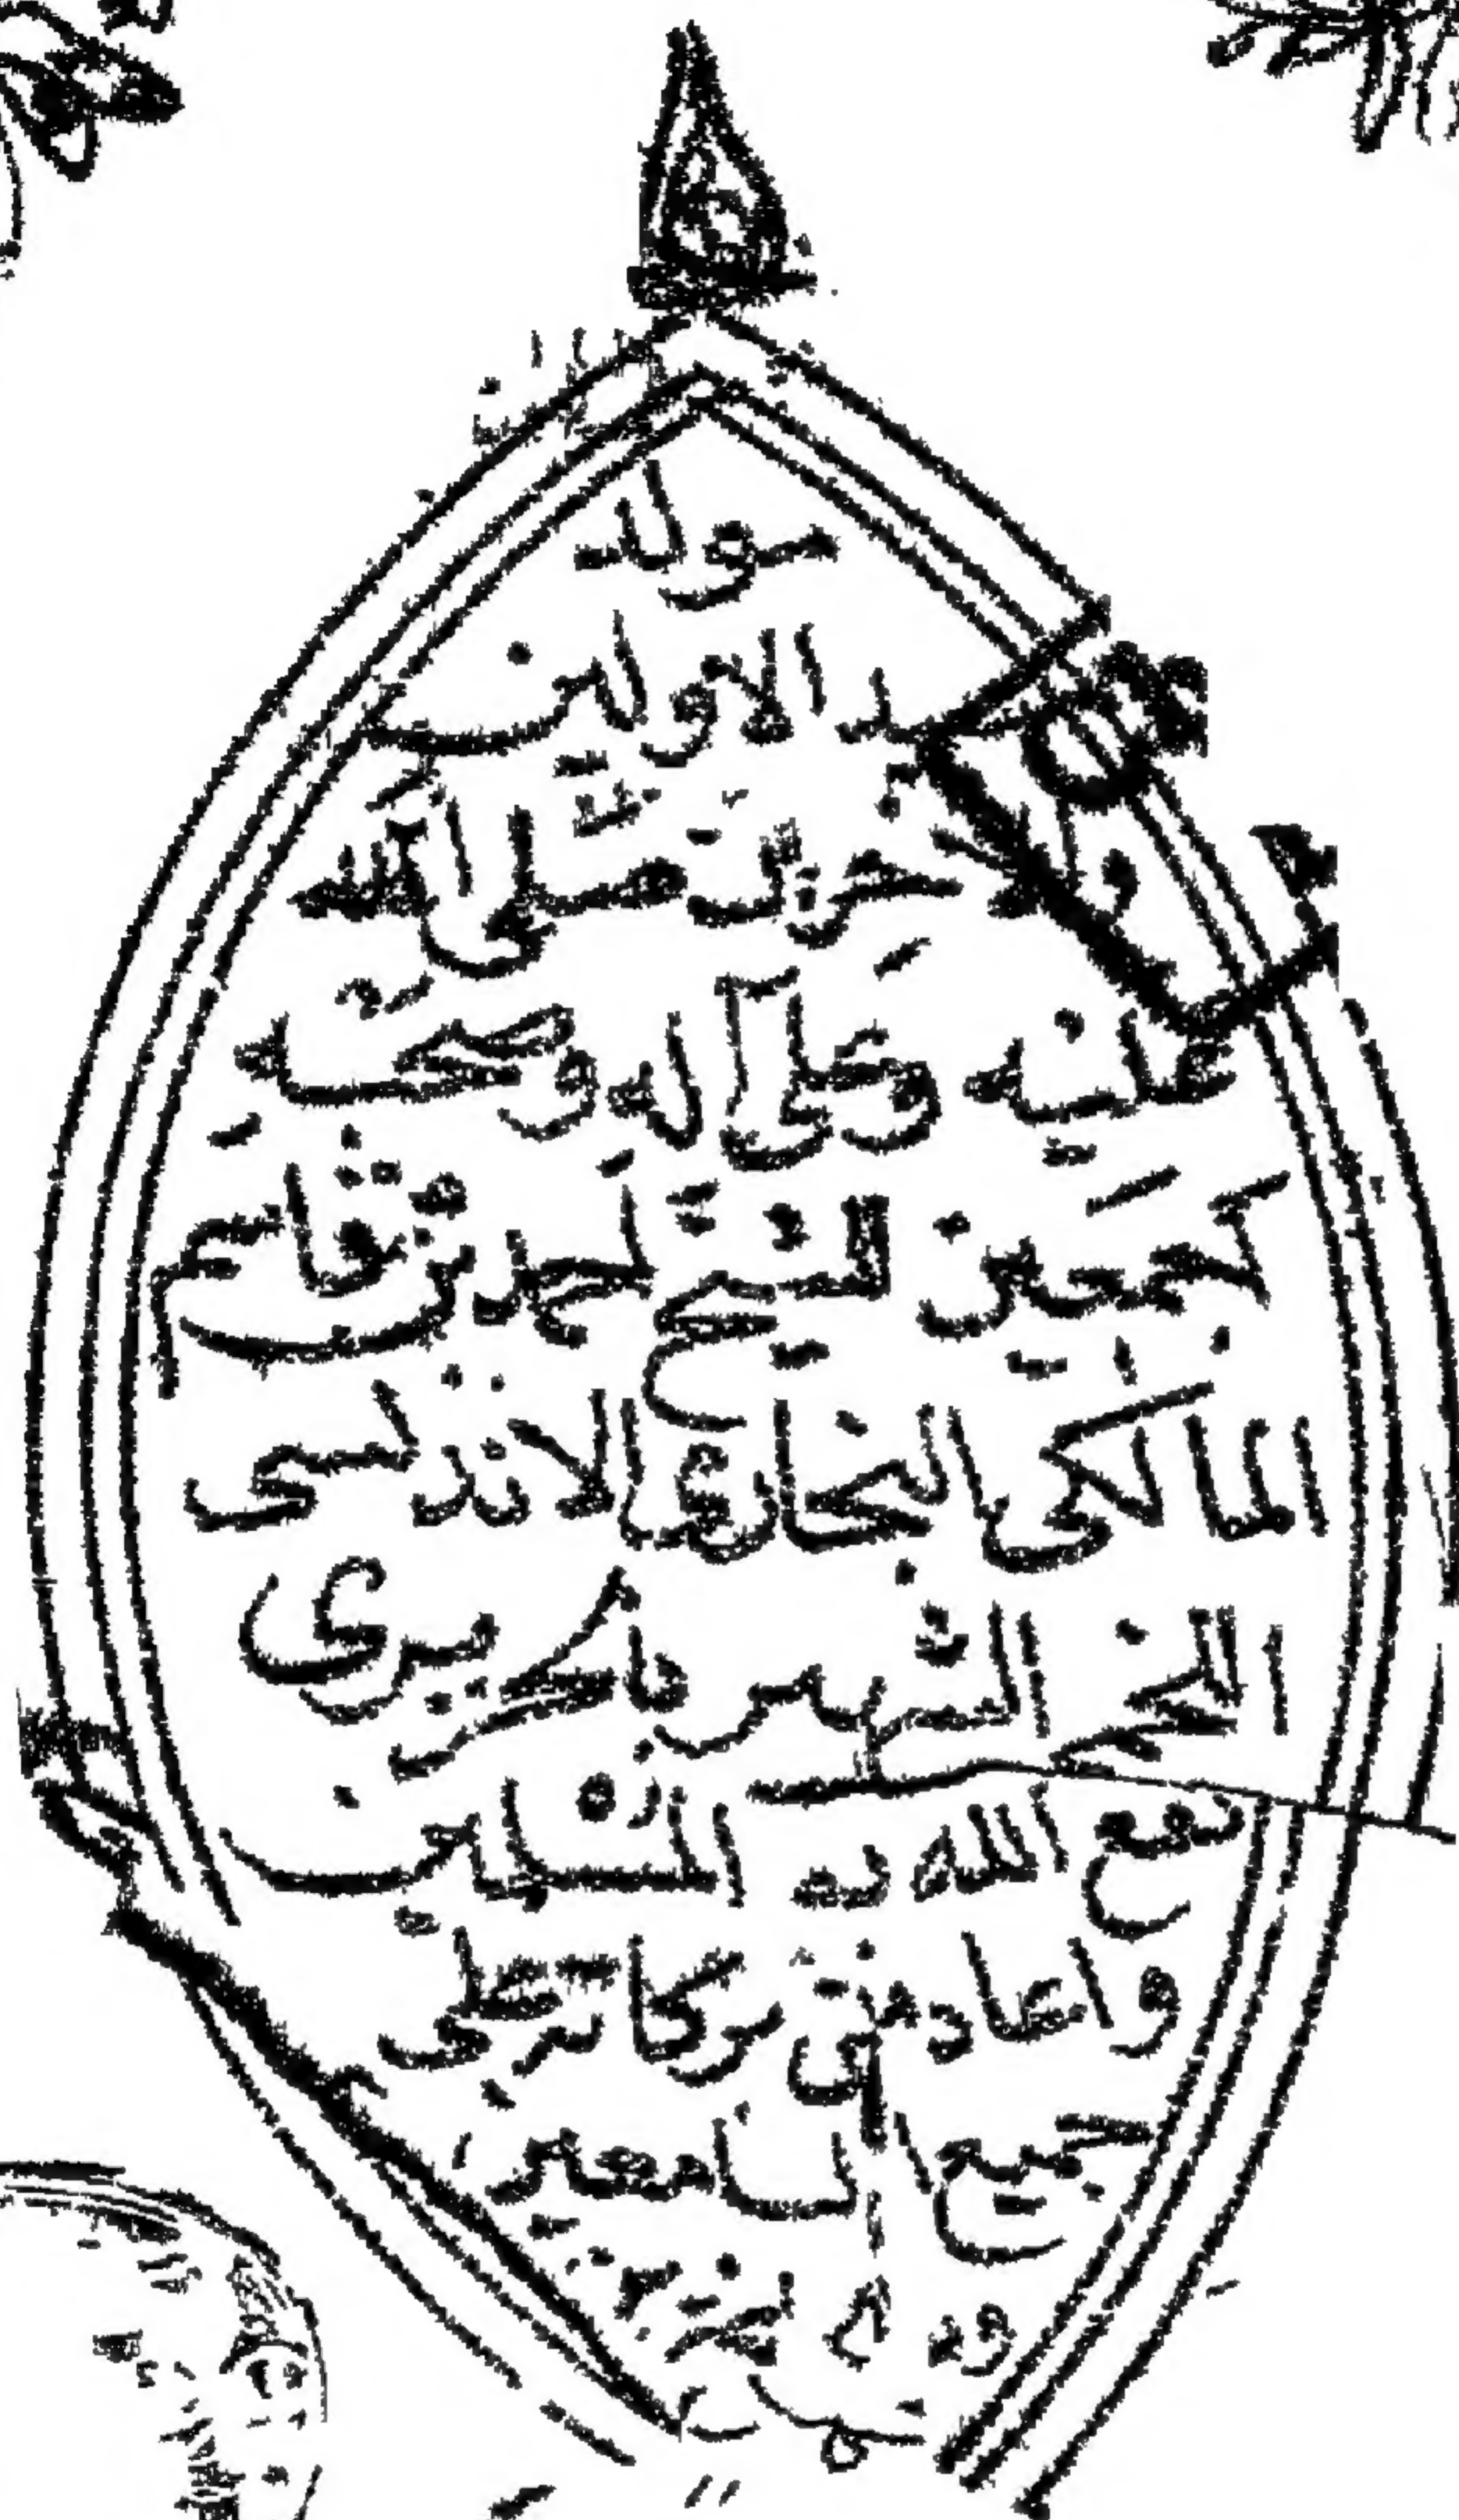 مولد
سيد الاولين
والاخرين صلى الله
عليه وعلى آله وصحبه
اجمعين للشيخ احمد بن قاسم
المالكي البخاري الاندلسي
الشهير بالحريري
نفع الله به المسلمين
واعاد من بركاته على
جميع السامعين